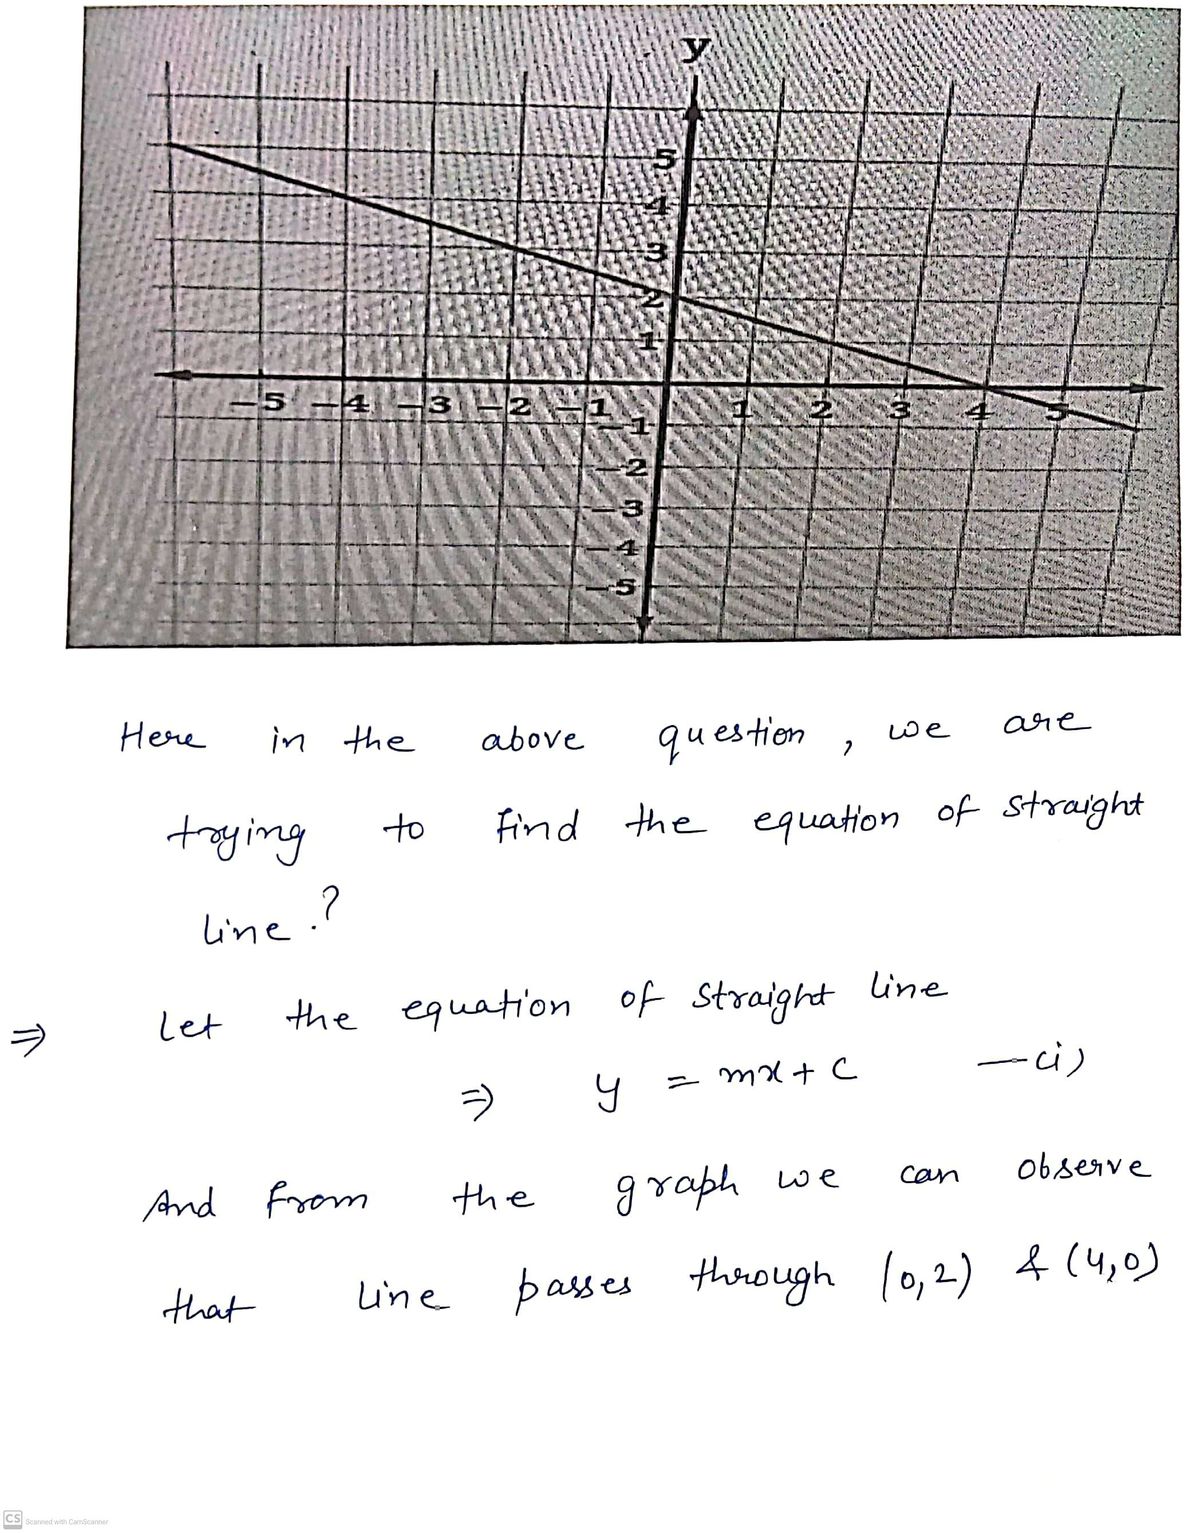 y
5
4
3
2
1
-5 -4 -3 -2 -1 1 2 3 4 5
-1
-2
-3
-4
-5
Here in the above question, we are
trying to find the equation of straight
line.?
⇒ Let the equation of straight line
⇒ y = mx + c —(i)
And from the graph we can observe
that line passes through (0,2) & (4,0)
CS Scanned with CamScanner